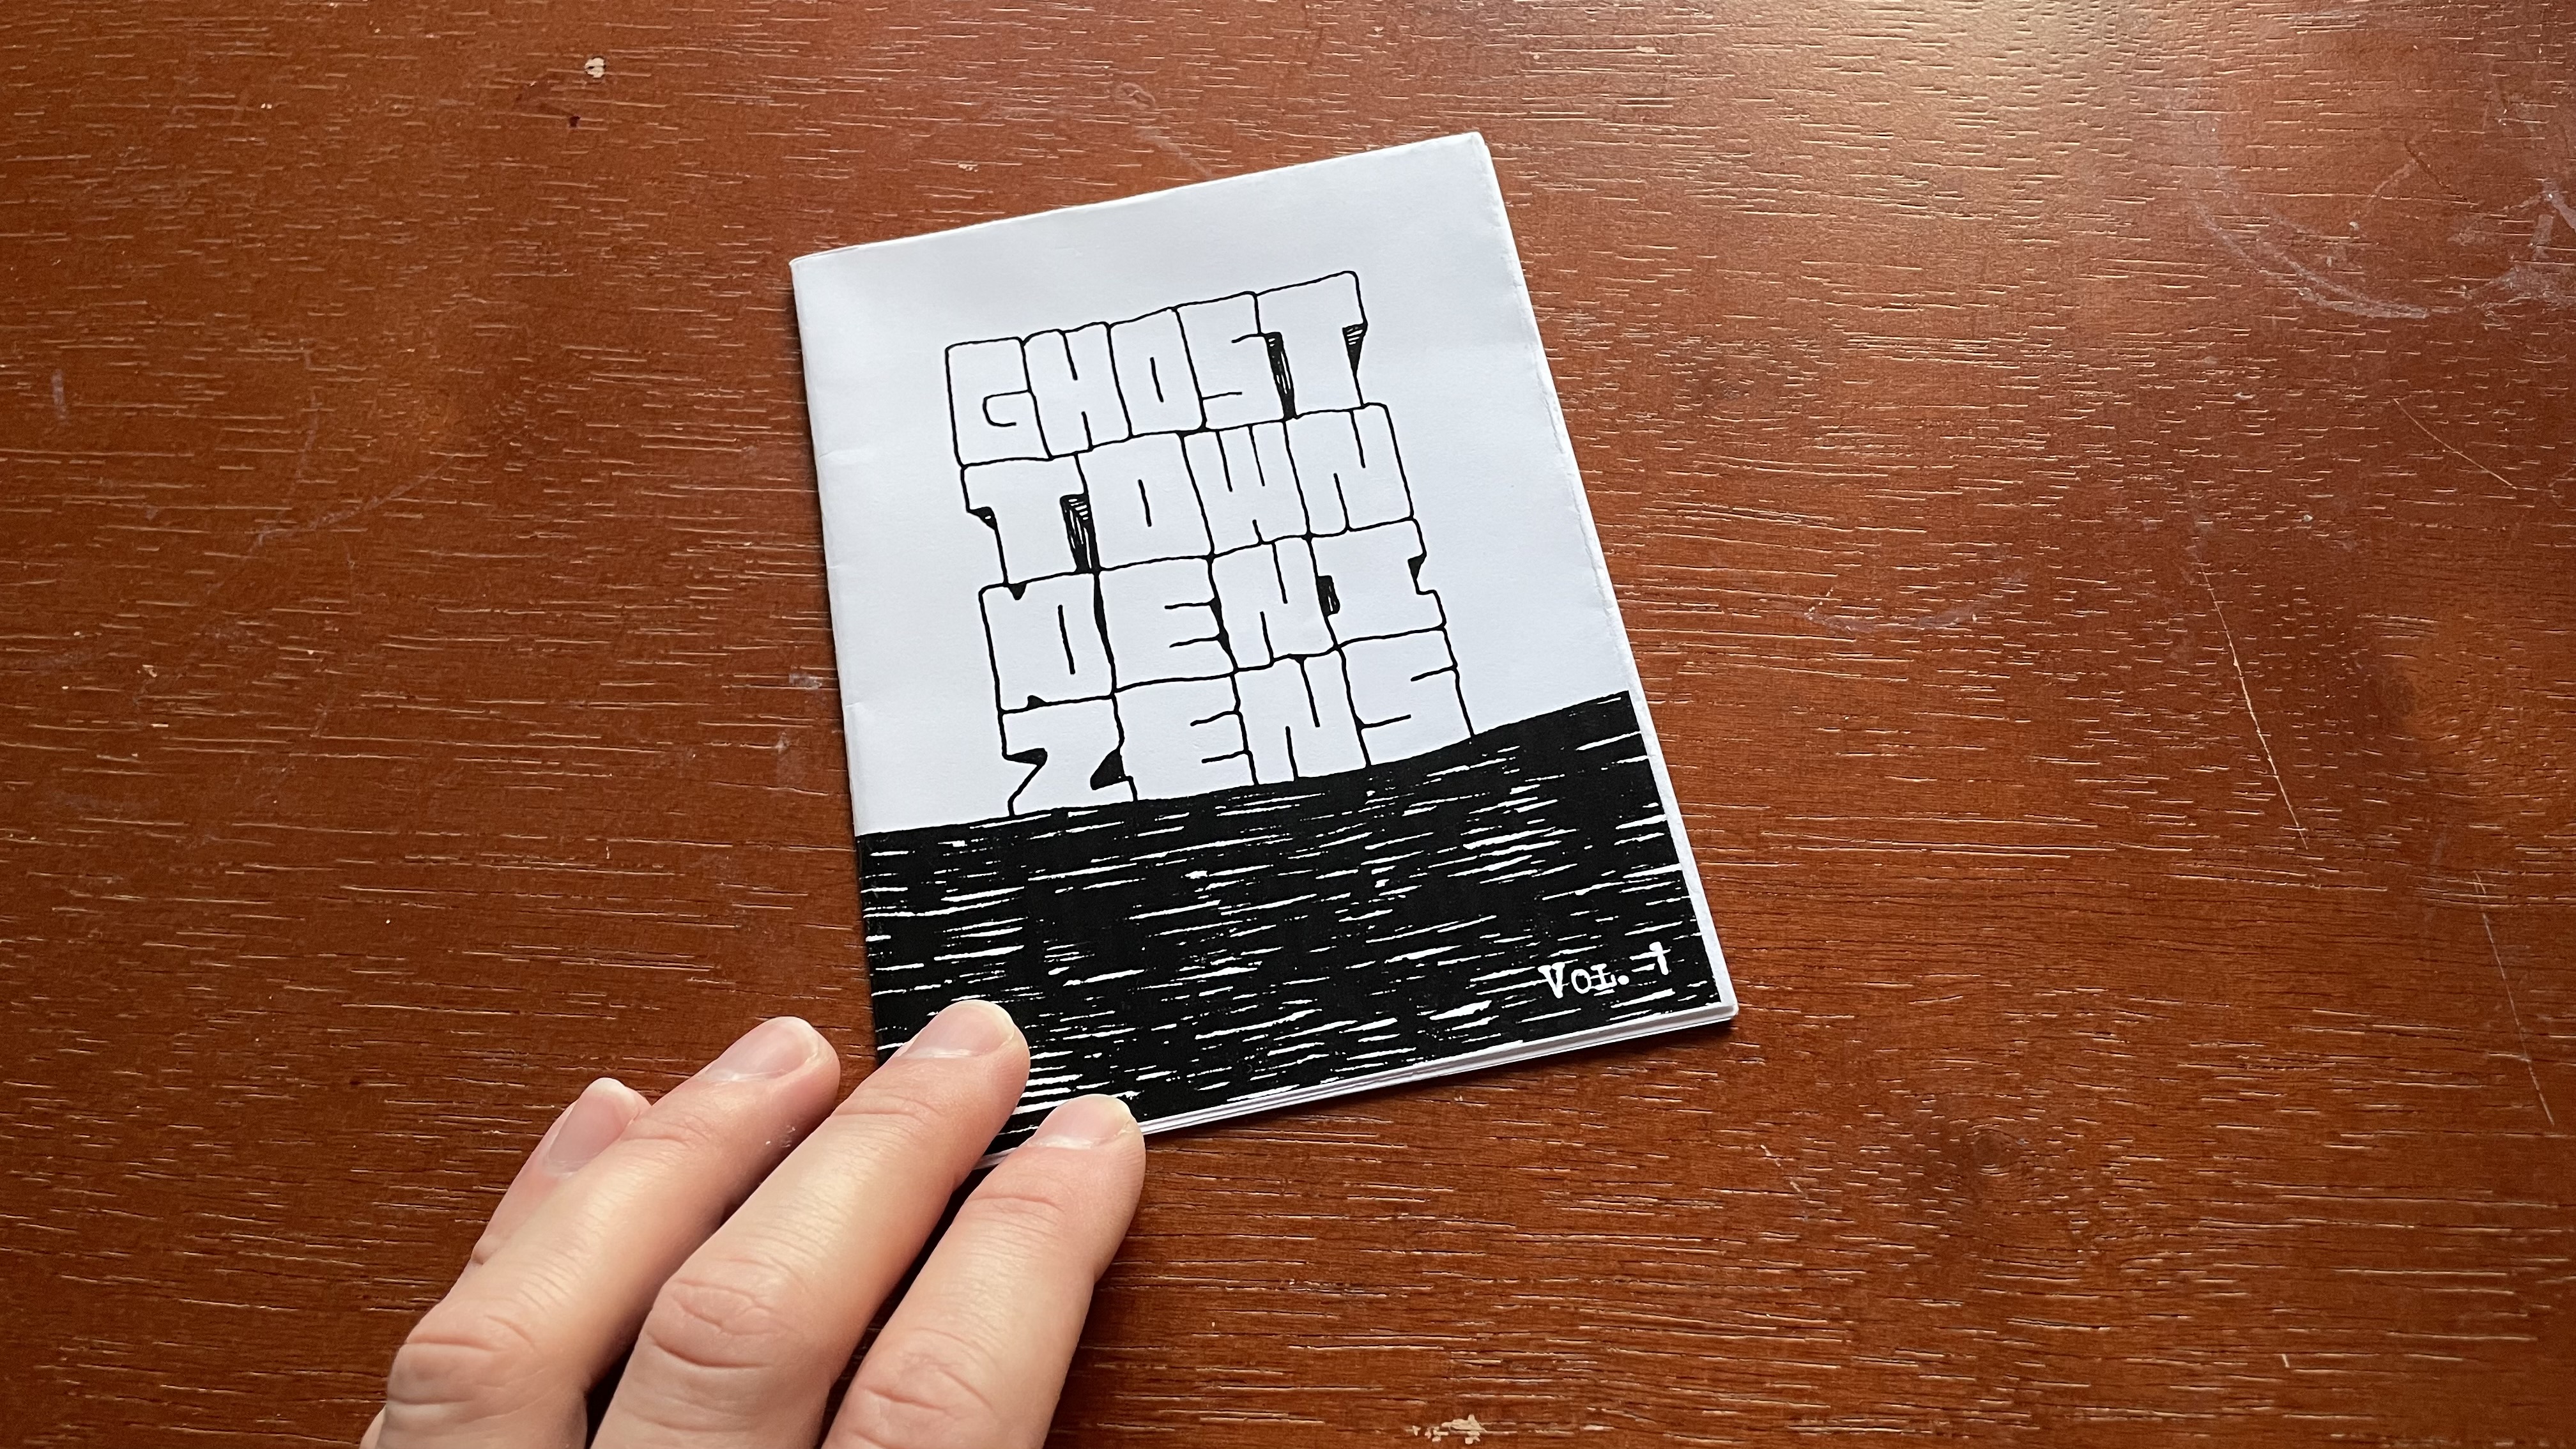 GHOST
TOWN
DENI
ZENS
VOL. 1